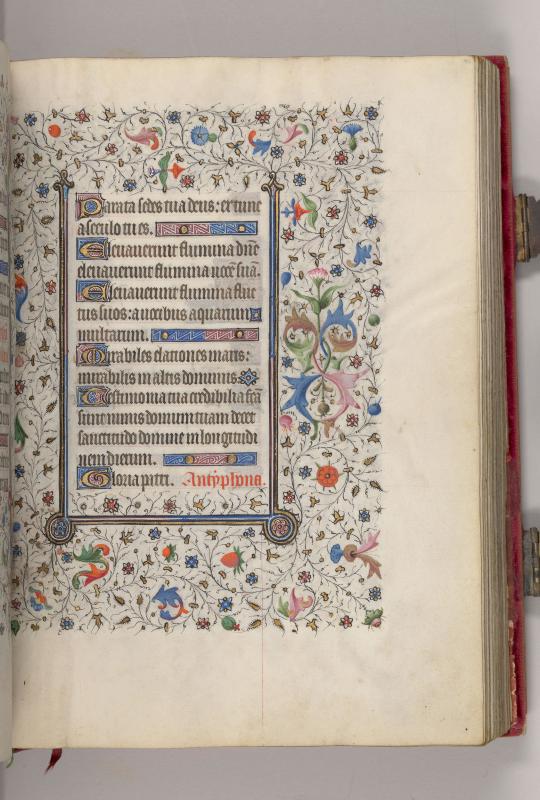 Parata sedes tua deus: ex tunc
a seculo tu es.
Eleuauerunt flumina dñe
eleuauerunt flumina uocẽ suã.
Eleuauerunt flumina fluc
tus suos: a uocibus aquarum
multarum.
Mirabiles elationes maris:
mirabilis in altis dominus.
Testimonia tua credibilia fcã
sunt nimis domum tuam decet
sanctitudo domine in longitudi
nem dierum.
Gloria patri. Antyphona.